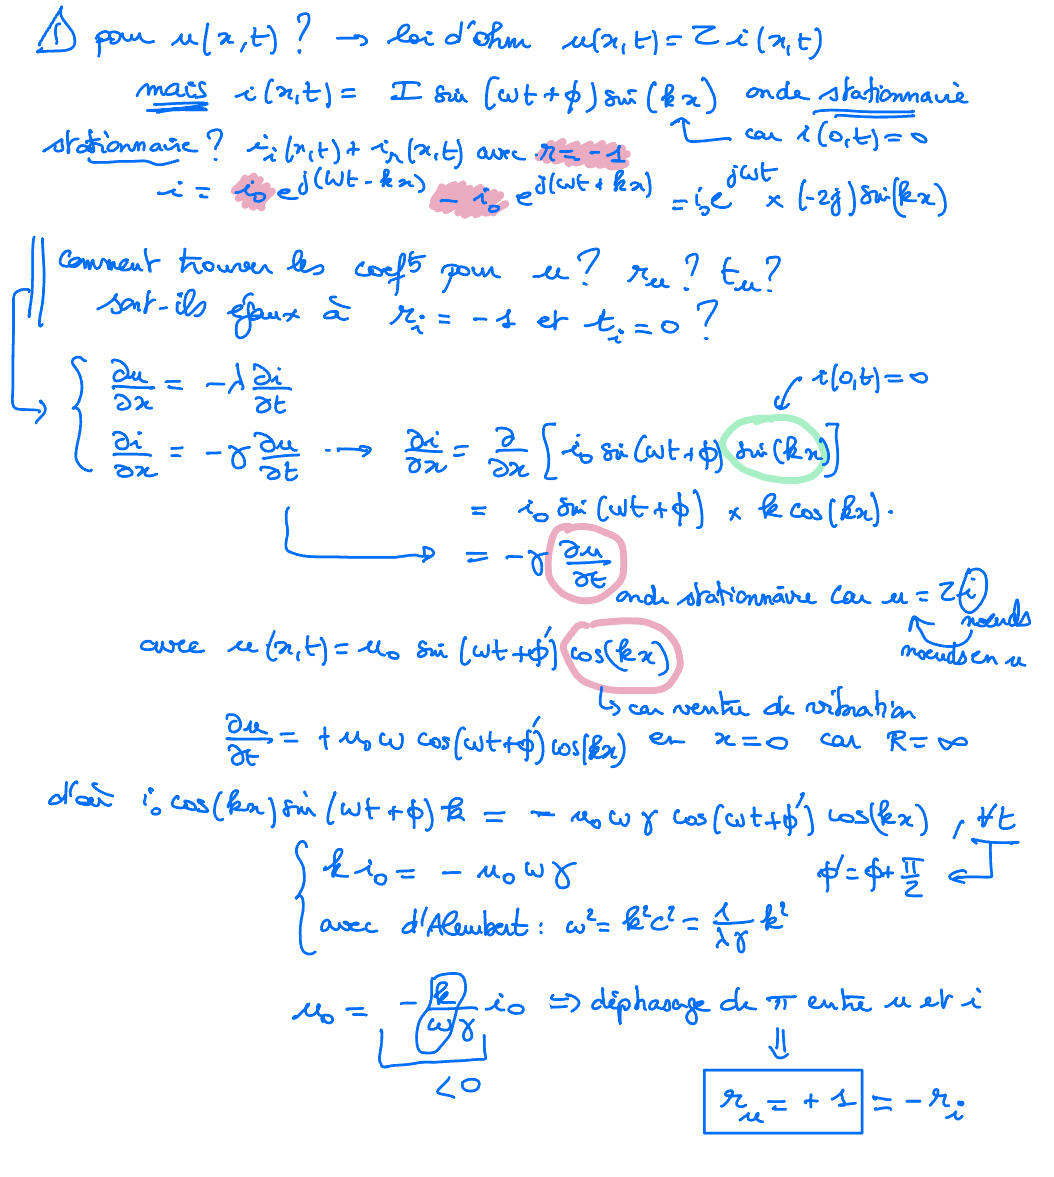 ⚠ pour u(x,t) ? → loi d'ohm u(x,t) = Z i(x,t)
mais i(x,t) = I sin(ωt+ϕ) sin(kx) onde stationnaire
car i(0,t)=0
stationnaire ? i_i(x,t) + i_r(x,t) avec r = -1
i = i_0 e^{j(ωt-kx)} - i_0 e^{j(ωt+kx)} = i_0 e^{jωt} × (-2j) sin(kx)
comment trouver les coefts pour u ? r_u ? t_u ?
sont-ils égaux à r_i = -1 et t_i = 0 ?
i(0,t)=0
∂u/∂x = -λ ∂i/∂t
∂i/∂x = -γ ∂u/∂t → ∂i/∂x = ∂/∂x [i_0 sin(ωt+ϕ) sin(kx)]
= i_0 sin(ωt+ϕ) × k cos(kx).
= -γ ∂u/∂t
onde stationnaire car u = Z i
noeuds
noeuds en u
avec u(x,t) = u_0 sin(ωt+ϕ') cos(kx)
↳ car ventre de vibration
∂u/∂t = + u_0 ω cos(ωt+ϕ') cos(kx) en x=0 car R=∞
d'où i_0 cos(kx) sin(ωt+ϕ) k = - u_0 ω γ cos(ωt+ϕ') cos(kx) , ∀t
k i_0 = - u_0 ω γ
ϕ' = ϕ + π/2
avec d'Alembert : ω² = k²c² = 1/(λγ) k²
u_0 = - k/(ωγ) i_0 ⇒ déphasage de π entre u et i
<0
⇓
r_u = +1 = -r_i